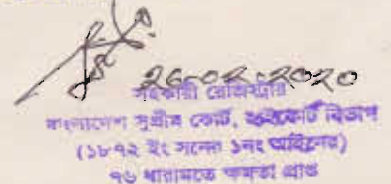 26-02-2020
সহকারী রেজিস্ট্রার
বাংলাদেশ সুপ্রীম কোর্ট, হাইকোর্ট বিভাগ
(১৮৭২ ইং সনের ১নং আইনের)
৭৬ ধারামতে ক্ষমতা প্রাপ্ত